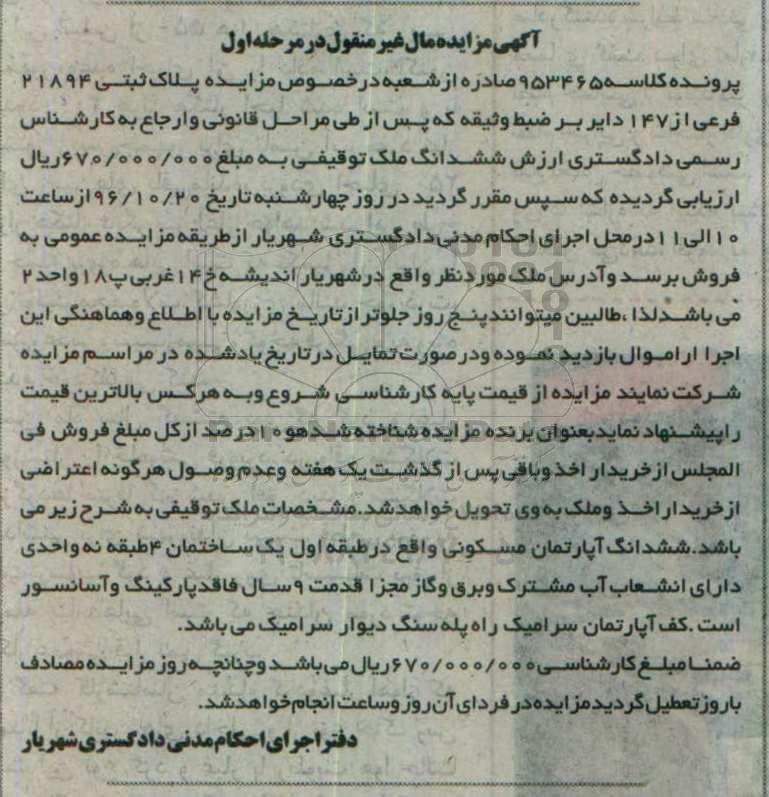 آگهی مزایده مال غیر منقول در مرحله اول
پرونده کلاسه ۹۵۳۴۶۵ صادره از شعبه درخصوص مزایده پلاک ثبتی ۲۱۸۹۴
فرعی از ۱۴۷ دایر بر ضبط وثیقه که پس از طی مراحل قانونی وارجاع به کارشناس
رسمی دادگستری ارزش ششدانگ ملک توقیفی به مبلغ ۶۷۰/۰۰۰/۰۰۰ ریال
ارزیابی گردیده که سپس مقرر گردید در روز چهارشنبه تاریخ ۹۶/۱۰/۲۰ از ساعت
۱۰ الی ۱۱ در محل اجرای احکام مدنی دادگستری شهریار از طریقه مزایده عمومی به
فروش برسد وآدرس ملک مورد نظر واقع درشهریار اندیشه خ ۱۴ غربی پ ۱۸ واحد ۲
می باشد لذا ، طالبین میتوانند پنج روز جلوتر از تاریخ مزایده با اطلاع وهماهنگی این
اجرا ار اموال بازدید نموده ودر صورت تمایل در تاریخ یادشده در مراسم مزایده
شرکت نمایند مزایده از قیمت پایه کارشناسی شروع وبه هرکس بالاترین قیمت
راپیشنهاد نماید بعنوان برنده مزایده شناخته شدهو ۱۰ درصد از کل مبلغ فروش فی
المجلس از خریدار اخذ وباقی پس از گذشت یک هفته وعدم وصول هرگونه اعتراضی
از خریدار اخذ وملک به وی تحویل خواهد شد. مشخصات ملک توقیفی به شرح زیر می
باشد. ششدانگ آپارتمان مسکونی واقع در طبقه اول یک ساختمان ۴ طبقه نه واحدی
دارای انشعاب آب مشترک وبرق وگاز مجزا قدمت ۹ سال فاقد پارکینگ وآسانسور
است . کف آپارتمان سرامیک راه پله سنگ دیوار سرامیک می باشد.
ضمنا مبلغ کارشناسی ۶۷۰/۰۰۰/۰۰۰ ریال می باشد وچنانچه روز مزایده مصادف
با روز تعطیل گردید مزایده در فردای آن روز وساعت انجام خواهد شد.
دفتر اجرای احکام مدنی دادگستری شهریار